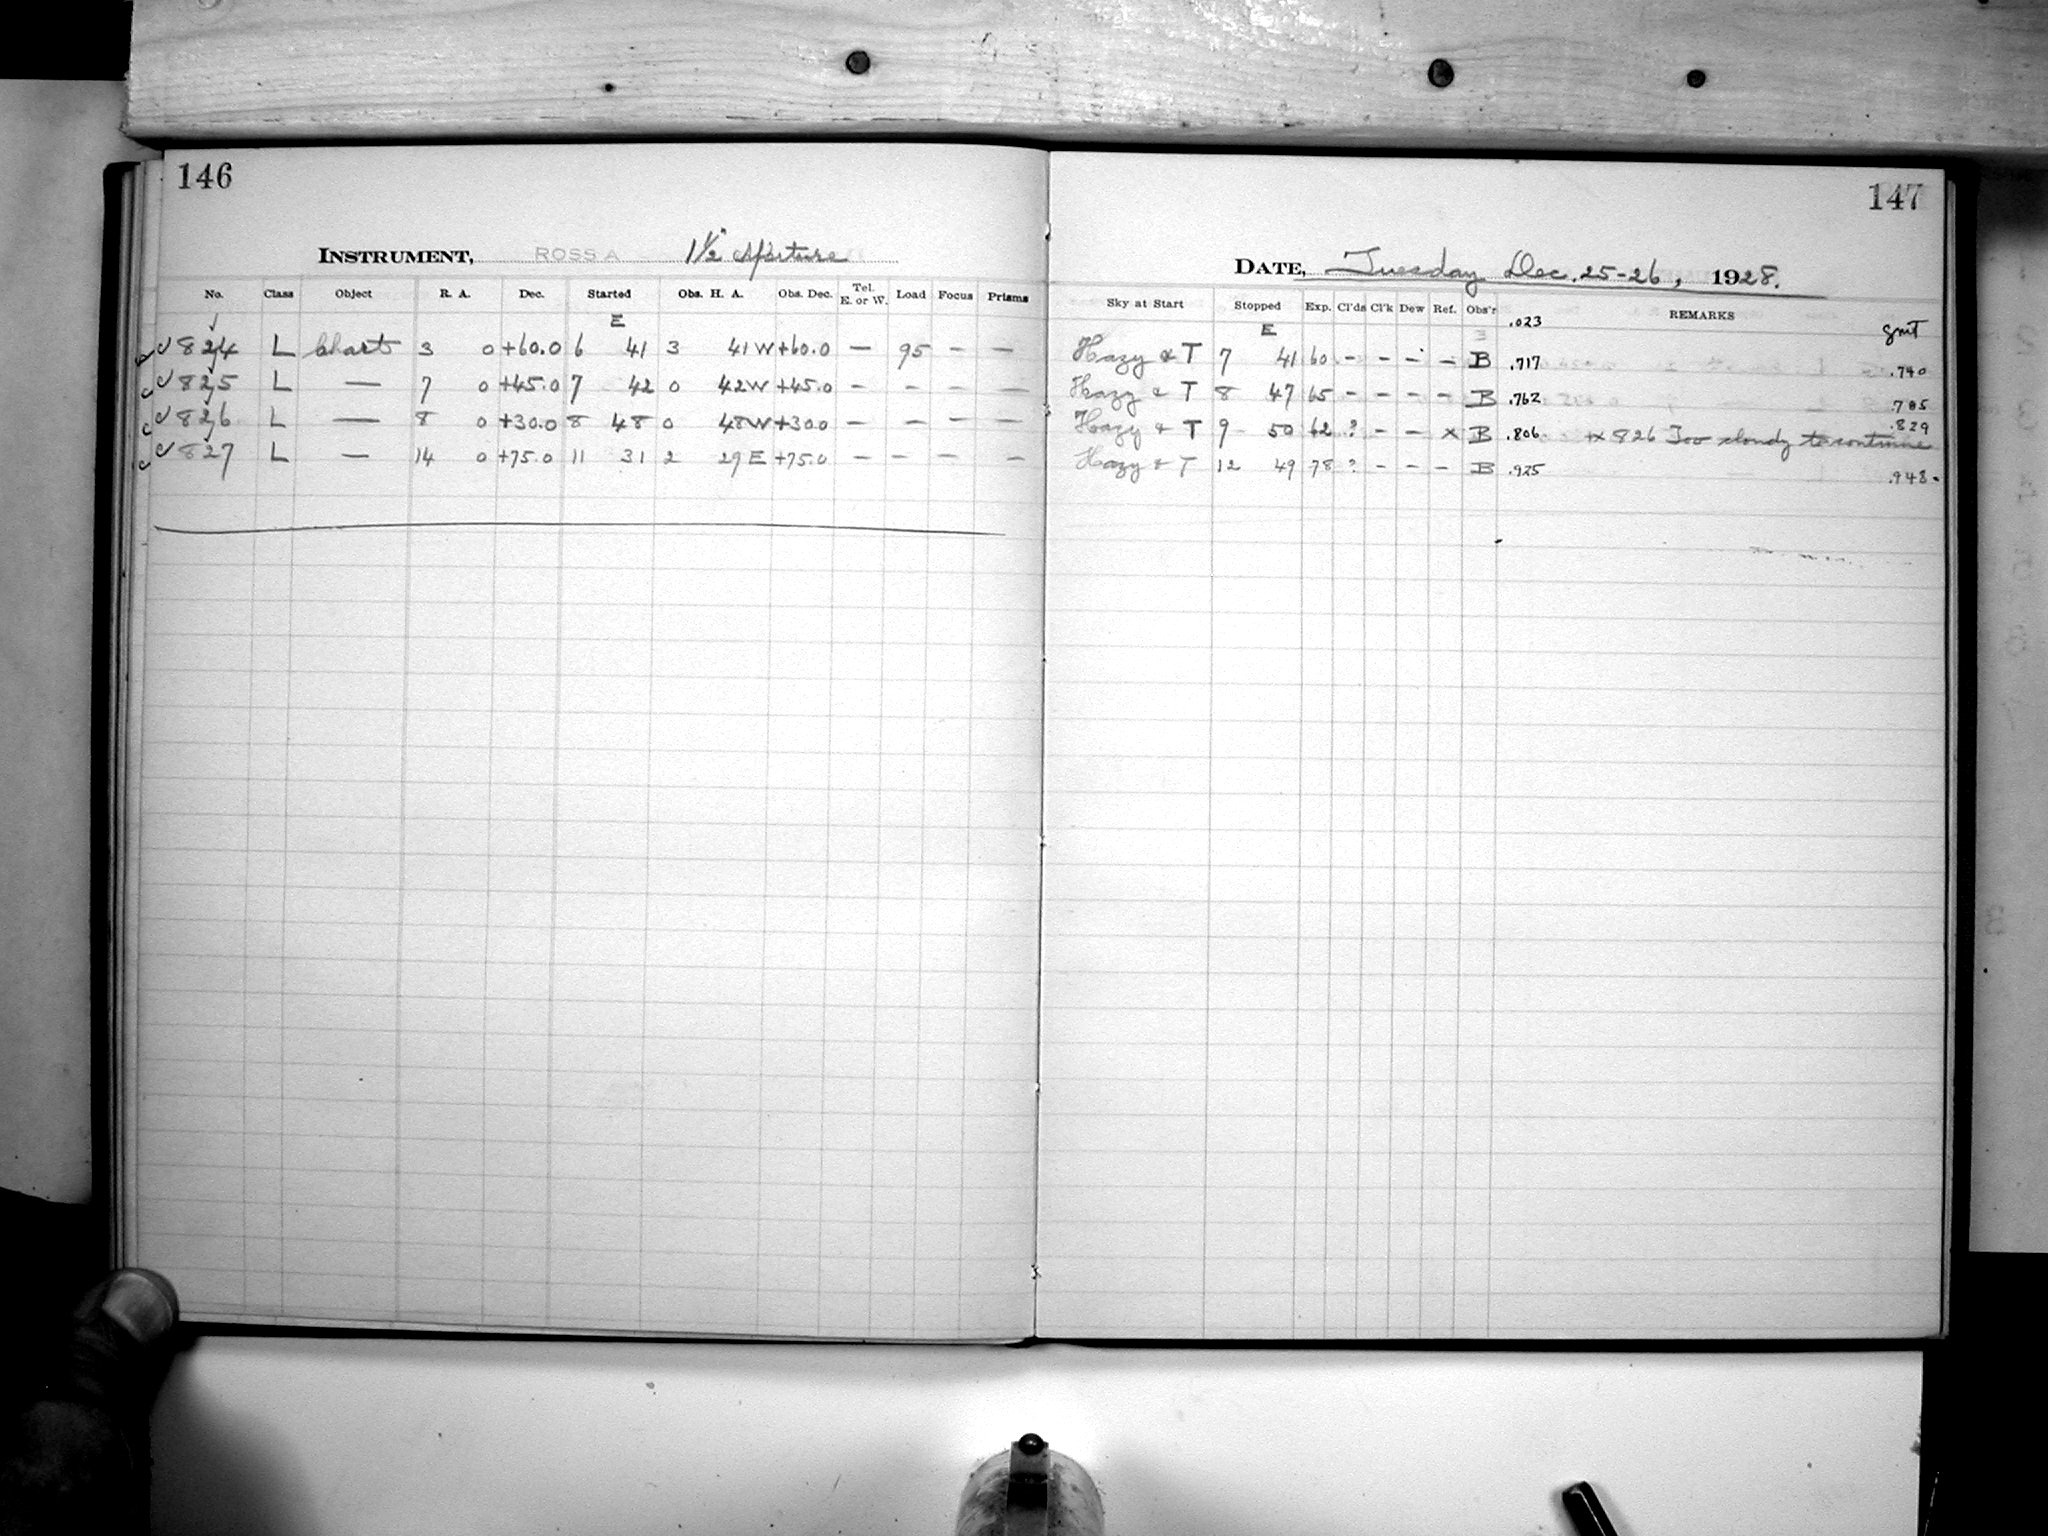 146
INSTRUMENT, ROSS A 1½" Aperture
No. Class Object R. A. Dec. Started Obs. H. A. Obs. Dec. Tel. E. or W. Load Focus Prisms
E
824 L Chart 3 0 +60.0 6 41 3 41 W +60.0 — 95 — —
825 L — 7 0 +45.0 7 42 0 42 W +45.0 — — — —
826 L — 8 0 +30.0 8 48 0 48 W +30.0 — — — —
827 L — 14 0 +75.0 11 31 2 29 E +75.0 — — — —
147
DATE, Tuesday Dec. 25-26, 1928.
Sky at Start Stopped Exp. Cl'ds Cl'k Dew Ref. Obs'r REMARKS
E .023 GMT
Hazy & T 7 41 60 — — — — B .717 .740
Hazy & T 8 47 65 — — — — B .762 .785
Hazy + T 9 50 62 ? — — x B .806 x 826 Too cloudy to continue .829
Hazy & T 12 49 78 ? — — — B .925 .948